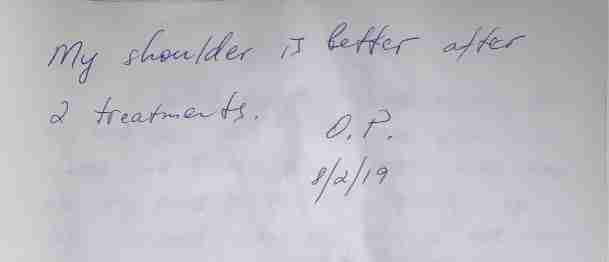 My shoulder is better after
2 treatments.
O.P.
8/2/19